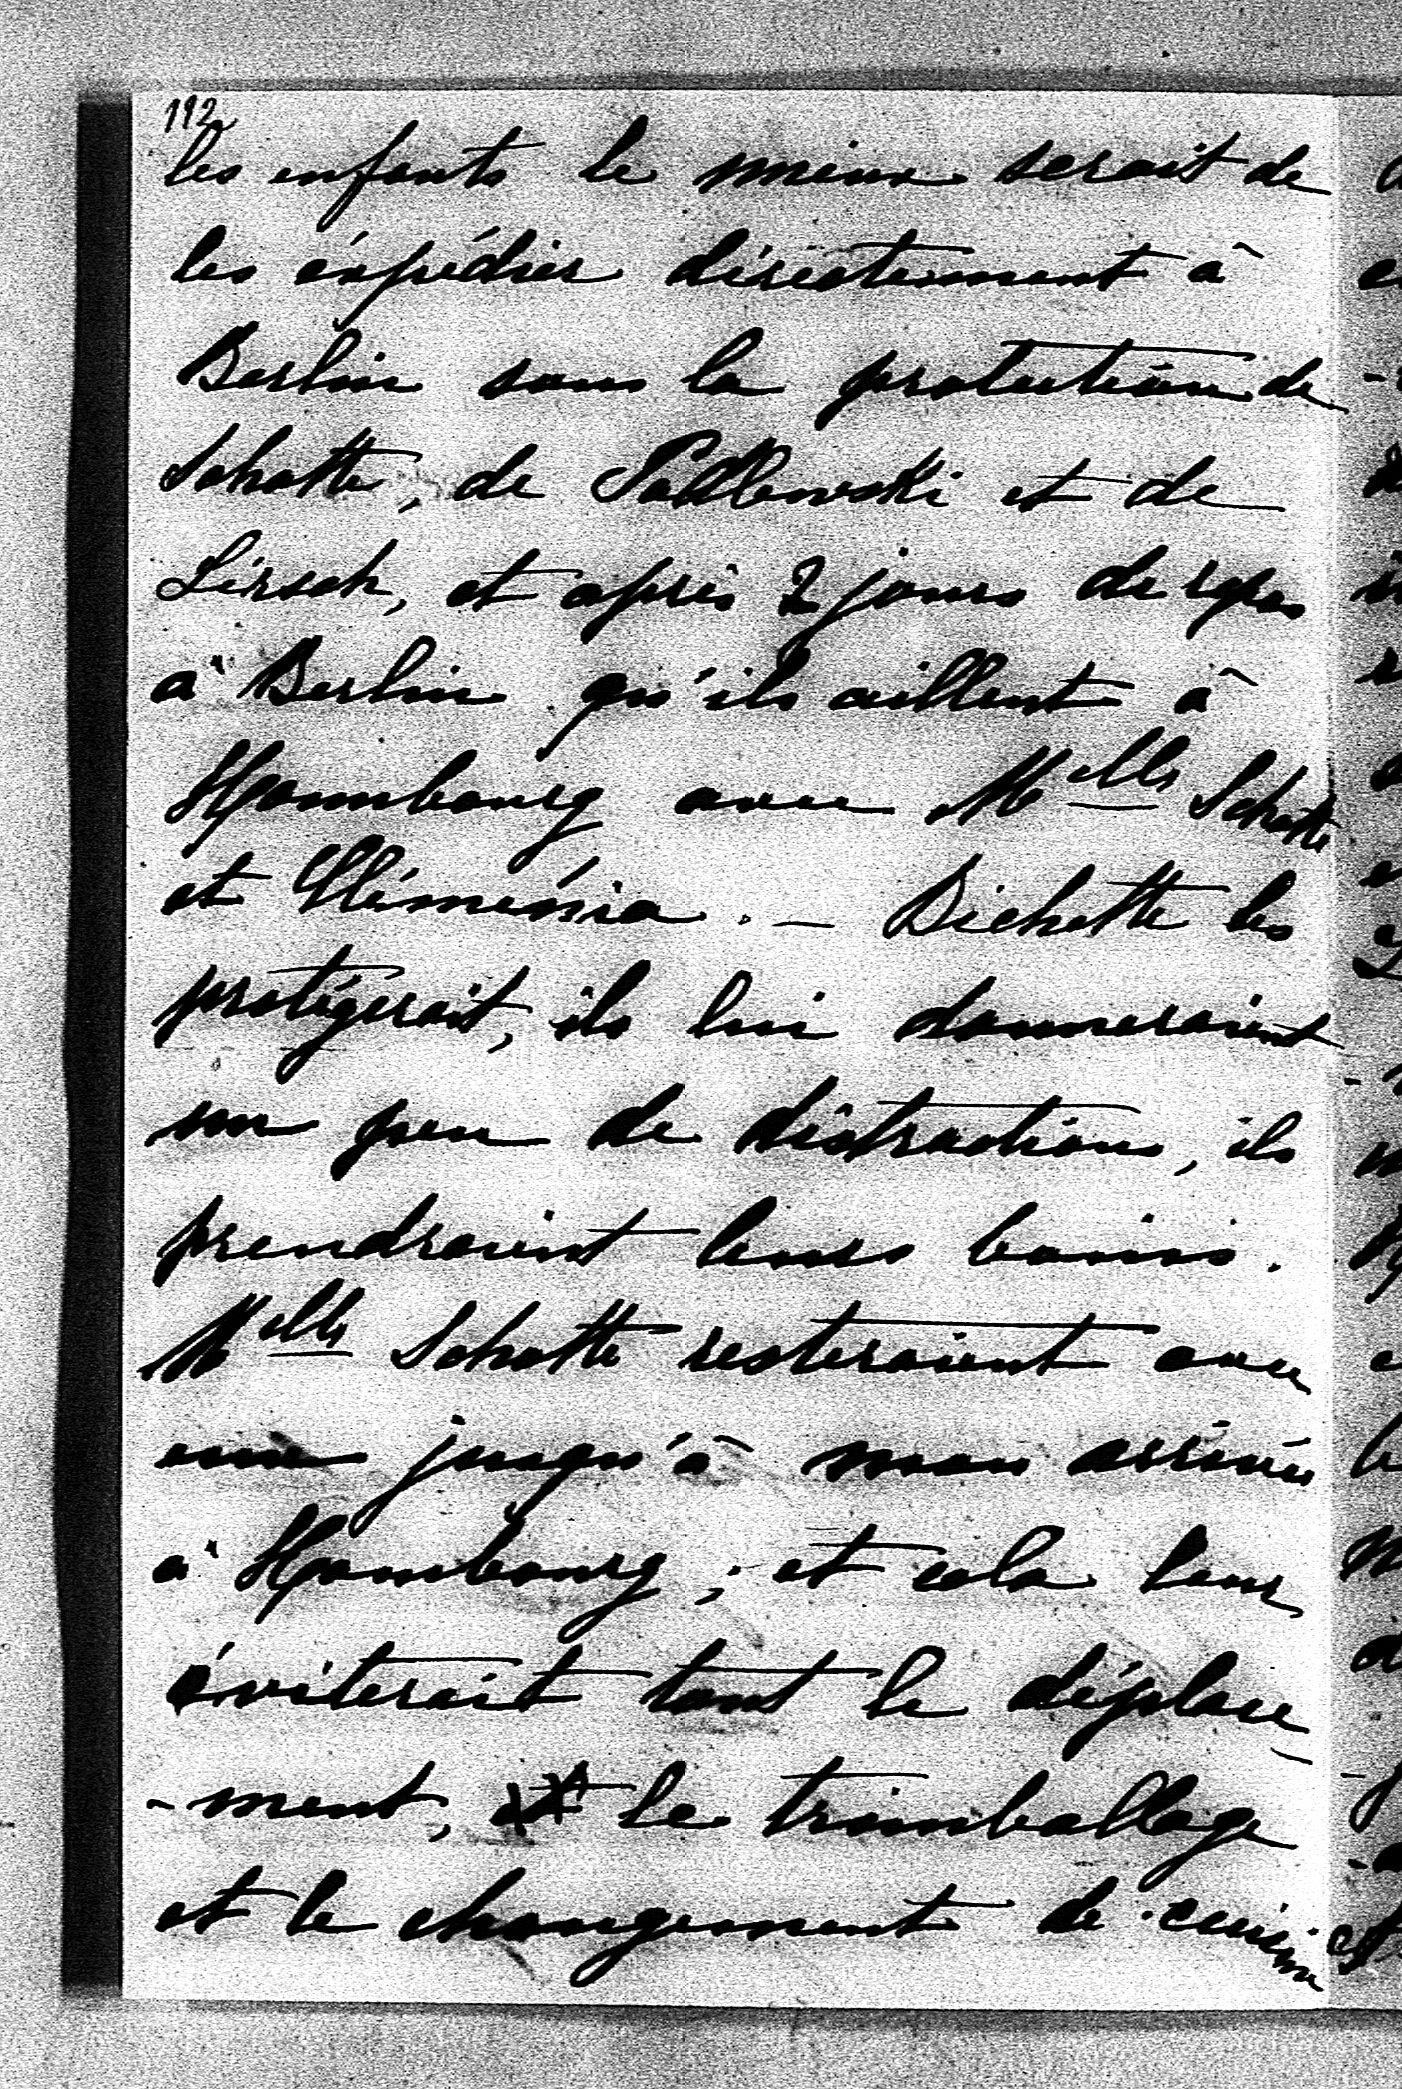 112
les enfants le mieux serait de
les éxpédier diréctement à
Berlin sous la protection de
Schotte, de Padlewski et de
Lirsch, et après 2 jours de repos
à Berlin qu'ils aillent à
Hombourg avec Melles Schotte
et Cléménia. — Bichette les
protégerait, ils lui donneraient
un peu de distractions, ils
prendraient leurs bains.
Melles Schotte resteraient avec
eux jusqu'à mon arrivée
à Hombourg; et cela leur
éviterait tout le déplace
-ment, le trimballage
et le changement de cuisine